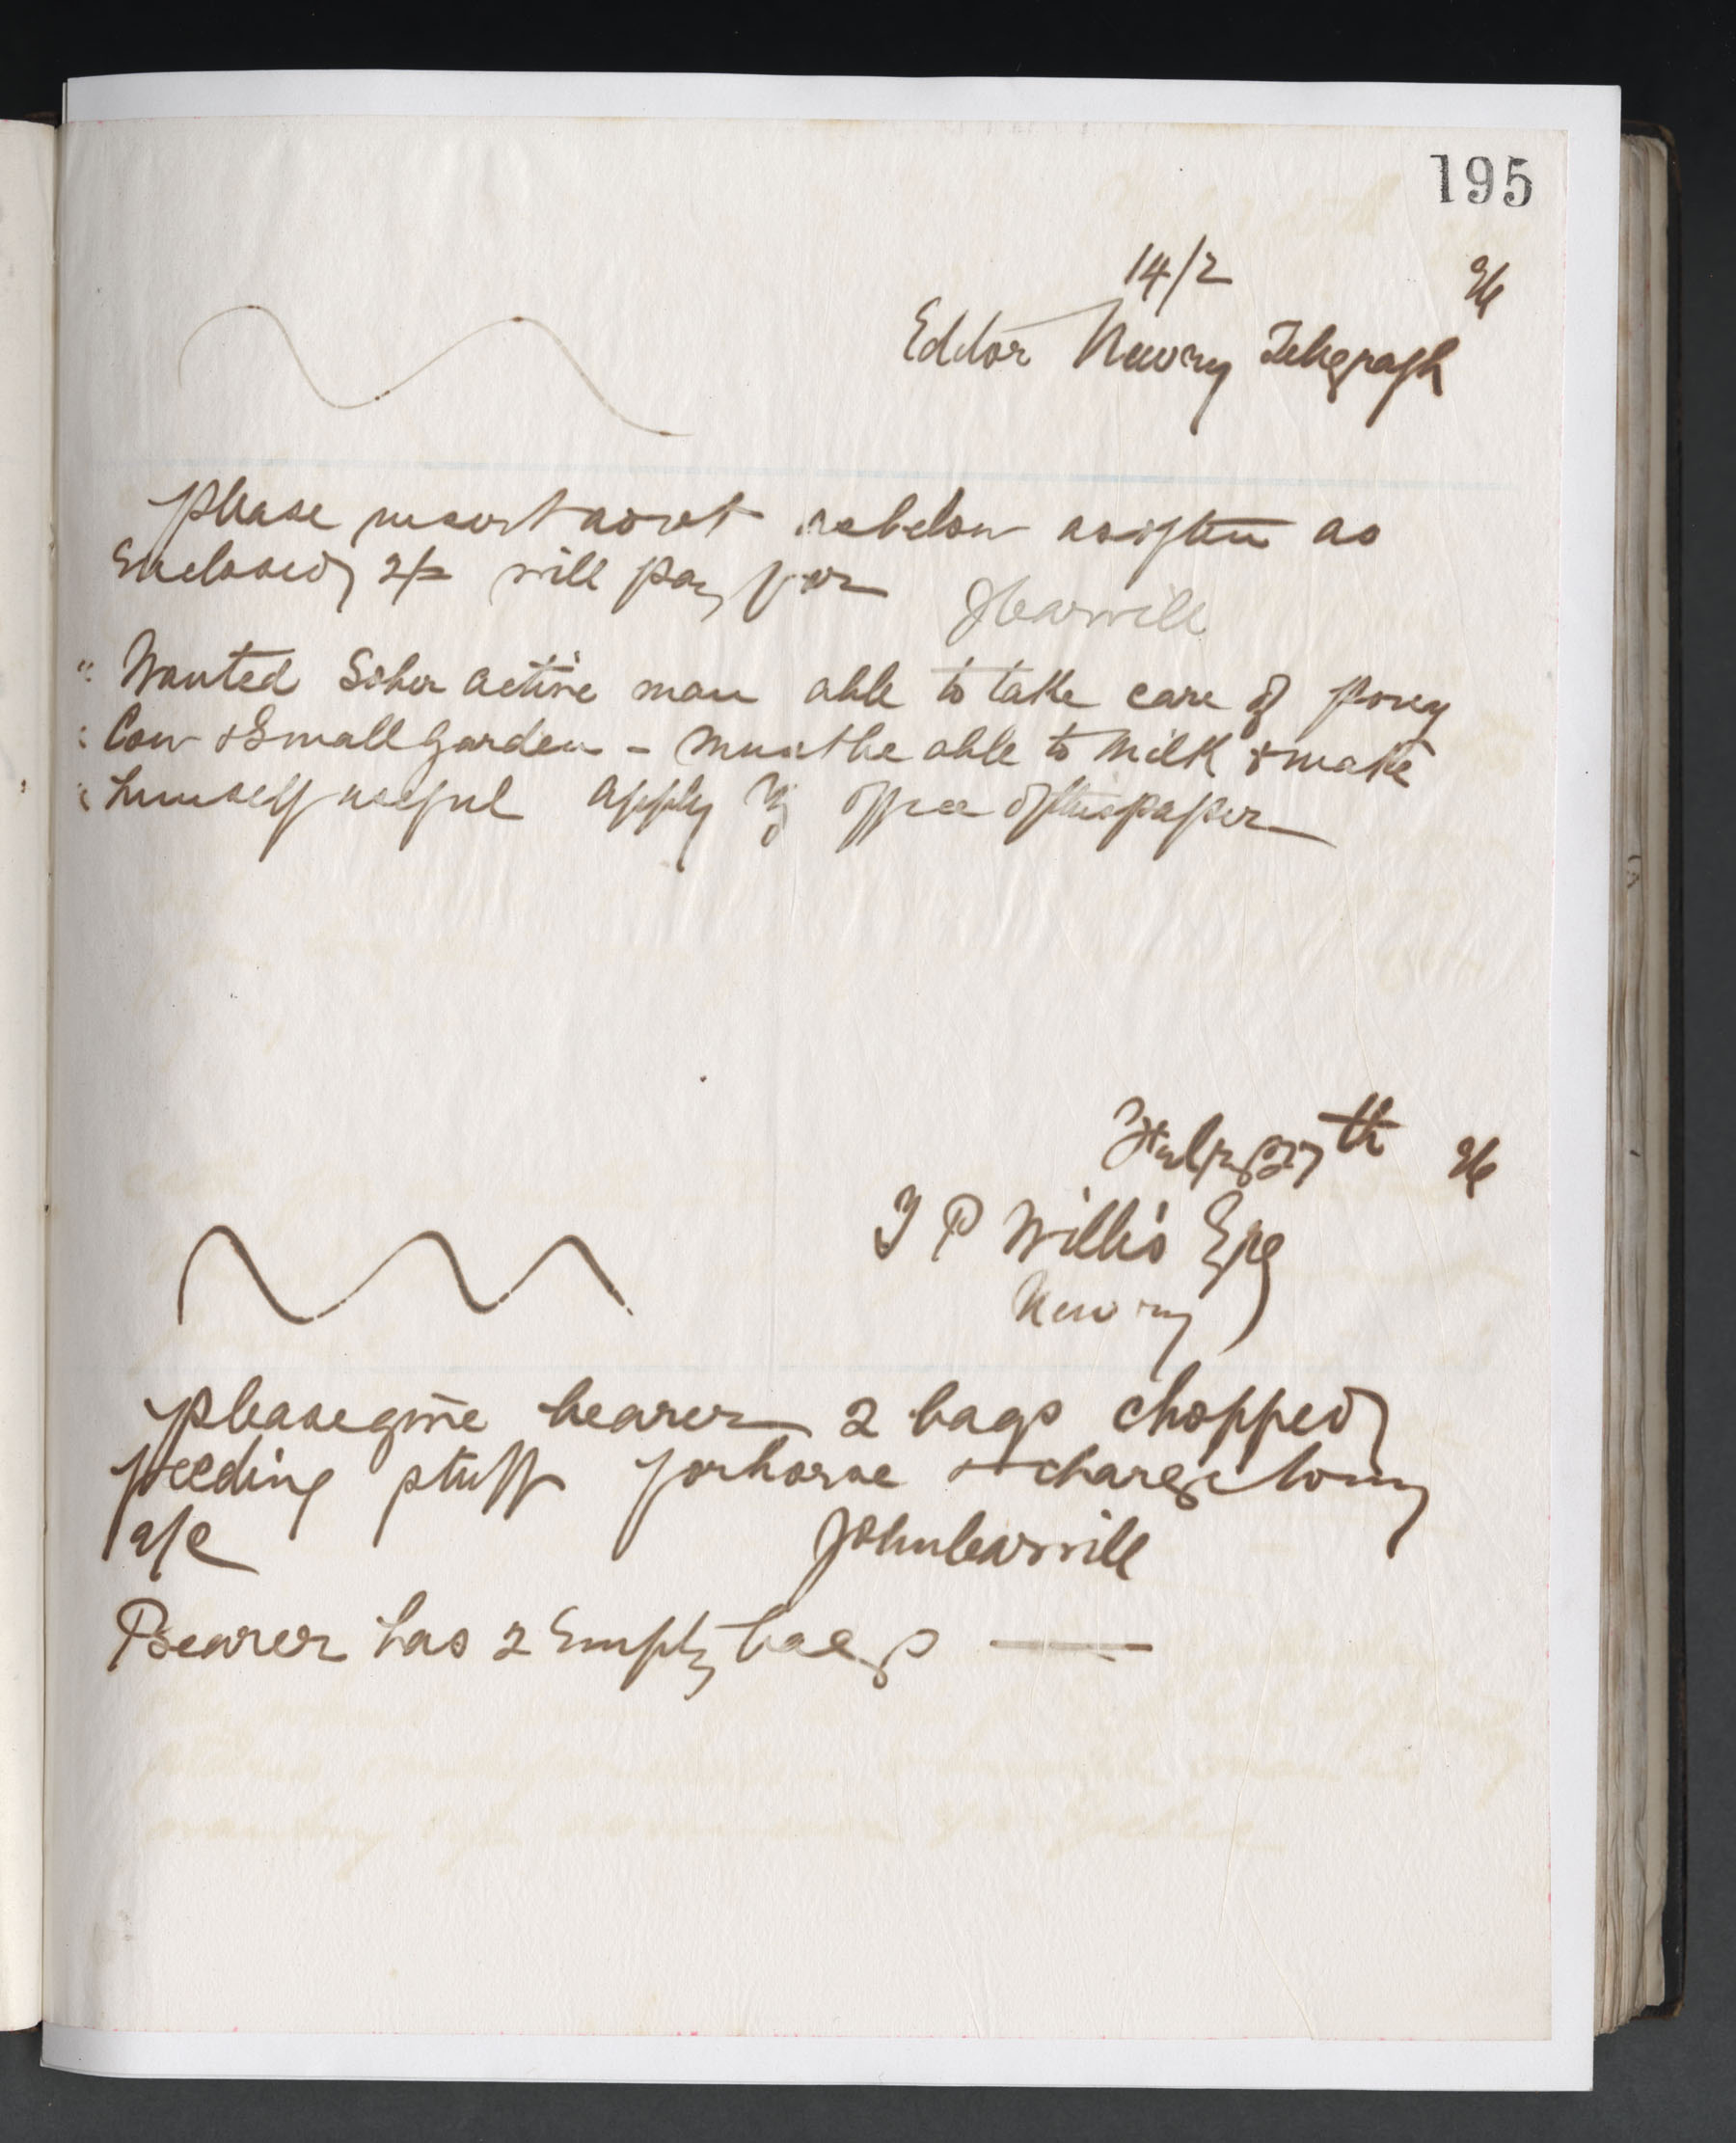 195
14/2 96
Editor Newry Telegraph
Please insert advt as below as often as
Enclosed 2/= will pay for JCarvill
" Wanted Sober active man able to take care of pony
" Cow & Small Garden - must be able to Milk & make
" himself useful apply office of this paper
27th 96
J P Willis Esq
Newry
Please give bearer 2 bags chopped
feeding stuff for horse & charge to my
a/c John Carvill
Bearer has 2 Empty bags —